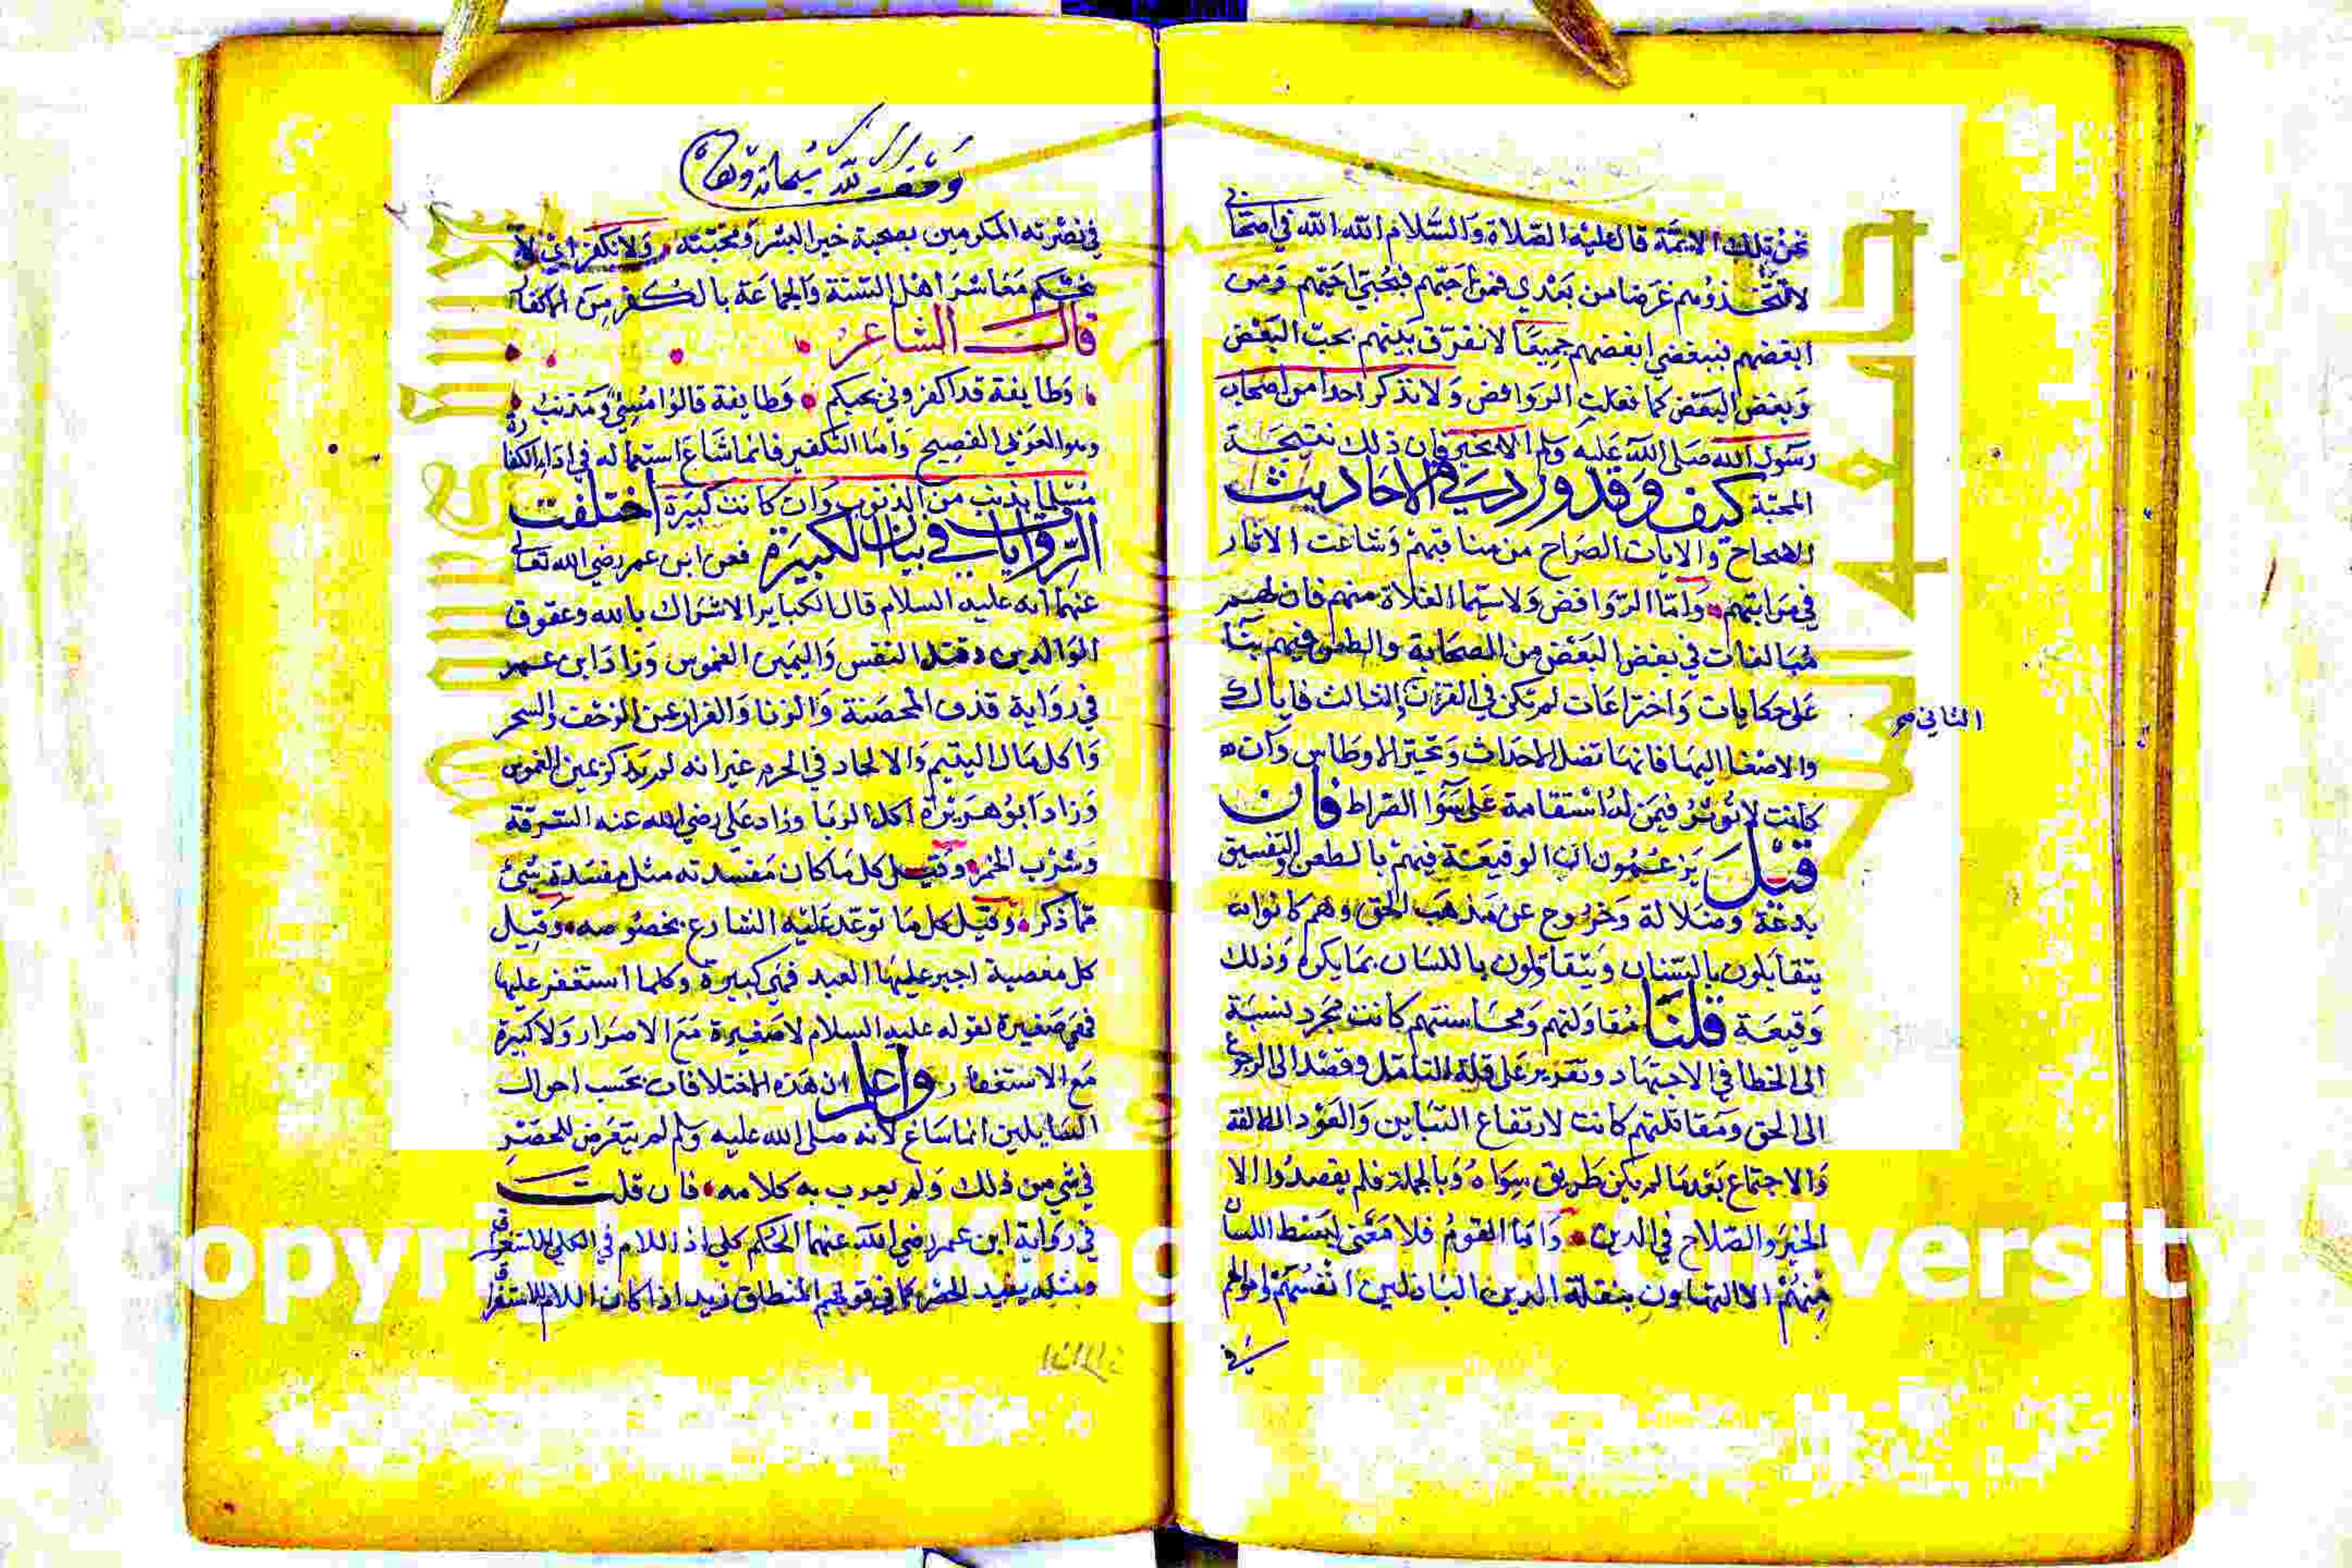 نحن تلك الائمة قال عليه الصلاة والسلام الله الله في اصحابي
لا تتخذوهم غرضا من بعدي فمن احبهم فبحبي احبهم ومن
ابغضهم فببغضي ابغضهم جميعا لا نفرق بينهم بحب البعض
وبغض البعض كما فعلت الروافض ولا نذكر احدا من اصحاب
رسول الله صلى الله عليه وسلم الا بخير فان ذلك نتيجة
المحبة كيف وقد ورد في الاحاديث
الصحاح والايات الصراح من مناقبهم وشاعت الاثار
في مراتبهم واما الروافض ولا سيما الغلاة منهم فان لهم
مبالغات في بغض البعض من الصحابة والطعن فيهم بنا
على حكايات واختراعات لم تكن في القرن الثالث فاياك
الثاني صح
والاصغا اليها فانها تضل الاحداث وتحير الاوطاس وان
كانت لا تؤثر فيمن له استقامة على سوا الصراط فان
قيل يزعمون ان الوقيعة فيهم بالطعن والتفسيق
بدعة وضلالة وخروج عن مذهب الحق وهم كانوا
يتقابلون بالسنان ويتقاولون باللسان بما يكره وذلك
وقيعة قلنا مقاولتهم ومحاسنتهم كانت مجرد نسبة
الى الخطا في الاجتهاد وتقرير على قلة التامل وقصد الى الرجوع
الى الحق ومقاتلتهم كانت لارتفاع التباين والعود الى الالفة
والاجتماع بعد ما لم يكن طريق سواه وبالجملة فلم يقصدوا الا
الخير والصلاح في الدين واما القوم فلا معنى لبسط اللسان
منهم الا التهاون بنقلة الدين الباذلين انفسهم واموالهم
في
وقف لله سبحانه وتعالى
في نصرته المكرمين بصحبة خير البشر ومحبته ولا نكفر اي لا
نحكم معاشر اهل السنة والجماعة بالكفر من
قال الشاعر
وطايفة قد اكفروني بحبكم وطايفة قالوا مسيء ومذنب
وهو العربي الفصيح واما التكفير فانما شاع استعماله في اداء الكفارة
مسلما بذنب من الذنوب وان كانت كبيرة اختلفت
الروايات في بيان الكبيرة فعن ابن عمر رضي الله تعالى
عنهما انه عليه السلام قال الكباير الاشراك بالله وعقوق
الوالدين وقتل النفس واليمين الغموس وزاد ابن عمر
في رواية قذف المحصنة والزنا والفرار عن الزحف والسحر
واكل مال اليتيم والالحاد في الحرم غير انه لم يذكر يمين الغموس
وزاد ابو هريرة اكل الربا وزاد علي رضي الله عنه السرقة
وشرب الخمر وقيل كل ما كان مفسدته مثل مفسدة شيئ
مما ذكر وقيل كل ما توعد عليه الشارع بخصوصه وقيل
كل معصية اجبر عليها العبد فهي كبيرة وكلما استغفر عليها
فهي صغيرة لقوله عليه السلام لا صغيرة مع الاصرار ولا كبيرة
مع الاستغفار واعلم ان هذه الاختلافات بحسب احوال
السايلين انما ساغ لانه صلى الله عليه وسلم لم يتعرض للحصر
في شي من ذلك ولم يعرب به كلامه فان قلت
في رواية ابن عمر رضي الله عنهما الحكم كلي اذ اللام في الكلي للاستغراق
ومثله يفيد الحصر كما في قولهم المنطلق زيد اذا كان اللام للاستغراق